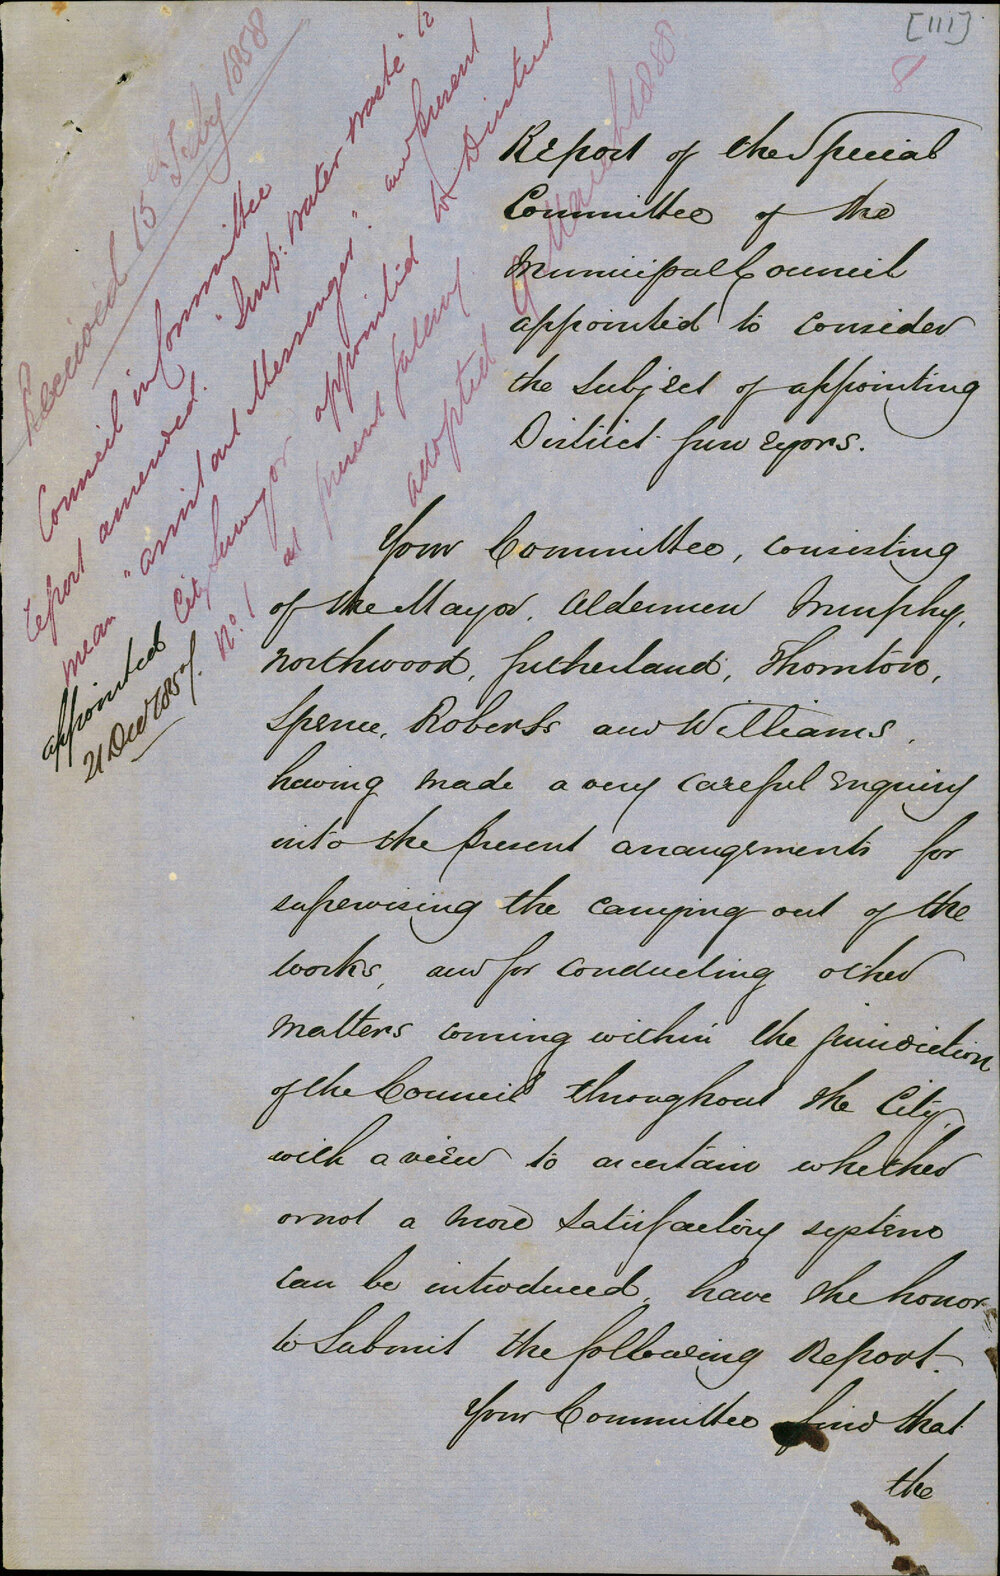 [111]
8
Received 15th Feby 1858
Council in Committee
report amended. "Insp: Water Waste" to
mean "assistant Messenger". and present
City Surveyor appointed to District
No. 1 at present salary
adopted 9 March 1858
appointed
21 Decr 1857.
Report of the Special
Committee of the
Municipal Council
appointed to consider
the subject of appointing
District Surveyors.
Your Committee, consisting
of the Mayor, Aldermen Murphy,
Northwood, Sutherland, Thornton,
Spence, Roberts and Williams,
having made a very careful enquiry
into the present arrangements for
supervising the carrying out of the
works, and for conducting other
matters coming within the jurisdiction
of the Council throughout the City,
with a view to ascertain whether
or not a more satisfactory system
can be introduced, have the honor
to Submit the following Report.
Your Committee find that
the